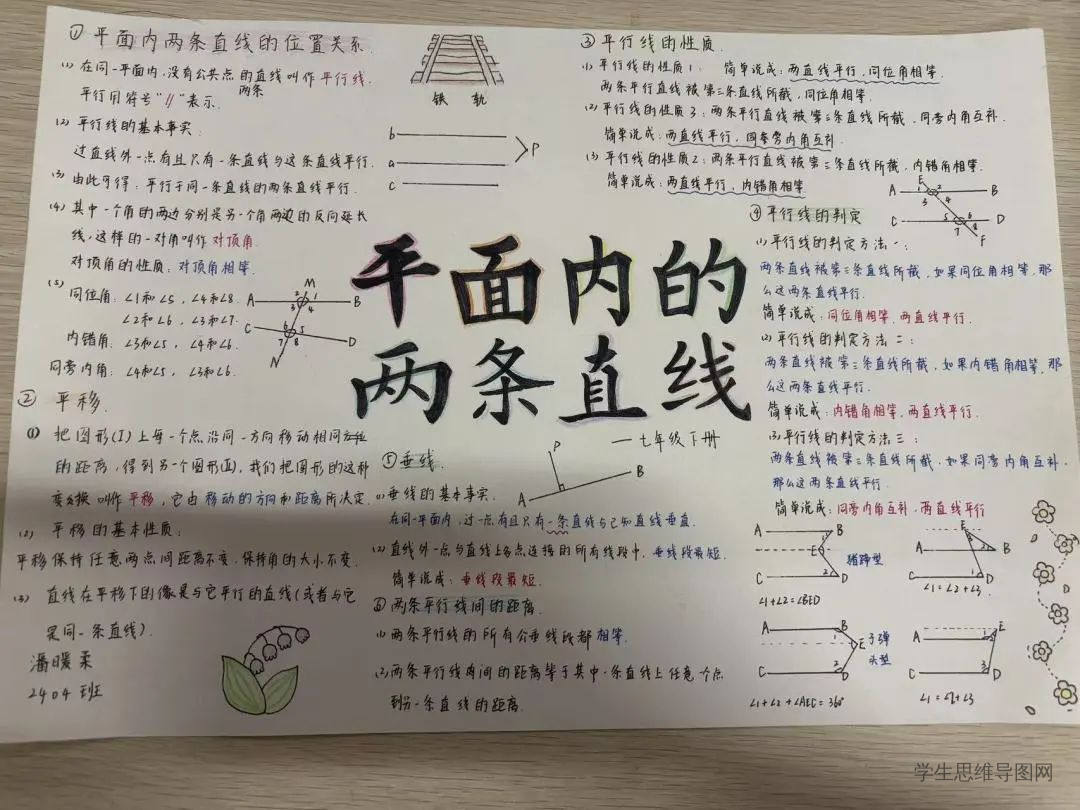 ①平面内两条直线的位置关系.
(1) 在同一平面内,没有公共点的两条直线叫作平行线.
平行用符号"∥"表示.
(2) 平行线的基本事实:
过直线外一点有且只有一条直线与这条直线平行.
(3) 由此可得:平行于同一条直线的两条直线平行.
(4) 其中一个角的两边分别是另一个角两边的反向延长
线,这样的一对角叫作对顶角.
对顶角的性质:对顶角相等.
(5) 同位角:∠1和∠5,∠4和∠8.
∠2和∠6,∠3和∠7.
内错角:∠3和∠5,∠4和∠6.
同旁内角:∠4和∠5,∠3和∠6.
铁轨
b
a
c
P
M
A
B
C
D
N
2 1
3 4
6 5
7 8
平面内的
两条直线
一七年级下册
② 平移.
(1) 把图形(I)上每一个点沿同一方向移动相同
的距离,得到另一个图形(II),我们把图形的这种
变换叫作平移,它由移动的方向和距离所决定.
(2) 平移的基本性质:
平移保持任意两点间距离不变,保持角的大小不变.
(3) 直线在平移下的像是与它平行的直线(或者与它
是同一条直线).
潘暖柔
2404班
③ 平行线的性质.
(1) 平行线的性质1: 简单说成:两直线平行,同位角相等.
两条平行直线被第三条直线所截,同位角相等.
(2) 平行线的性质3:两条平行直线被第三条直线所截,同旁内角互补.
简单说成:两直线平行,同旁内角互补.
(3) 平行线的性质2:两条平行直线被第三条直线所截,内错角相等.
简单说成:两直线平行,内错角相等
E
A
B
C
D
F
1 2
3 4
5 6
7 8
④ 平行线的判定
(1) 平行线的判定方法一:
两条直线被第三条直线所截,如果同位角相等,那
么这两条直线平行.
简单说成:同位角相等,两直线平行.
(2) 平行线的判定方法二:
两条直线被第三条直线所截,如果内错角相等,那
么这两条直线平行.
简单说成:内错角相等,两直线平行.
(3) 平行线的判定方法三:
两条直线被第三条直线所截,如果同旁内角互补,
那么这两条直线平行.
简单说成:同旁内角互补,两直线平行
⑤ 垂线.
P
A
B
(1) 垂线的基本事实.
在同一平面内,过一点有且只有一条直线与已知直线垂直.
(2) 直线外一点与直线上各点连接的所有线段中,垂线段最短.
简单说成:垂线段最短.
⑥ 两条平行线间的距离.
(1) 两条平行线的所有公垂线段都相等.
(2) 两条平行线间的距离等于其中一条直线上任意一个点
到另一条直线的距离.
A
B
1
E
2
C
D
猪蹄型
∠1+∠2=∠BED
E
A
B
C
D
∠1=∠2+∠3
A
B
1
E
2
C
D
子弹
头型
∠1+∠2+∠AEC=360°
A
B
E
C
D
∠1=∠2+∠3
学生思维导图网